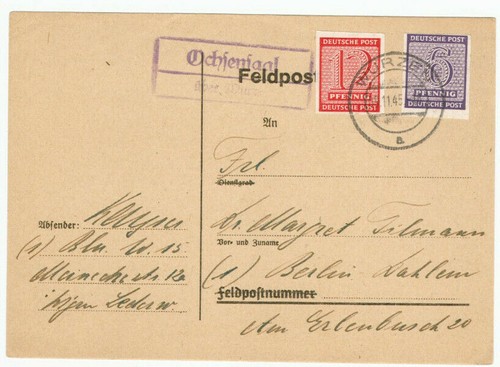 Ochsensaal
Feldpost
DEUTSCHE POST
12
PFENNIG
DEUTSCHE POST
DEUTSCHE POST
6
PFENNIG
DEUTSCHE POST
WURZEN
11.45
a
An
Frl.
Dienstgrad
Dr. Margret Tilmann
Vor- und Zuname
(1) Berlin Dahlem
Feldpostnummer
Am Erlenbusch 20
Absender:
(1) Bln. W. 15
Meinecke str. 12a